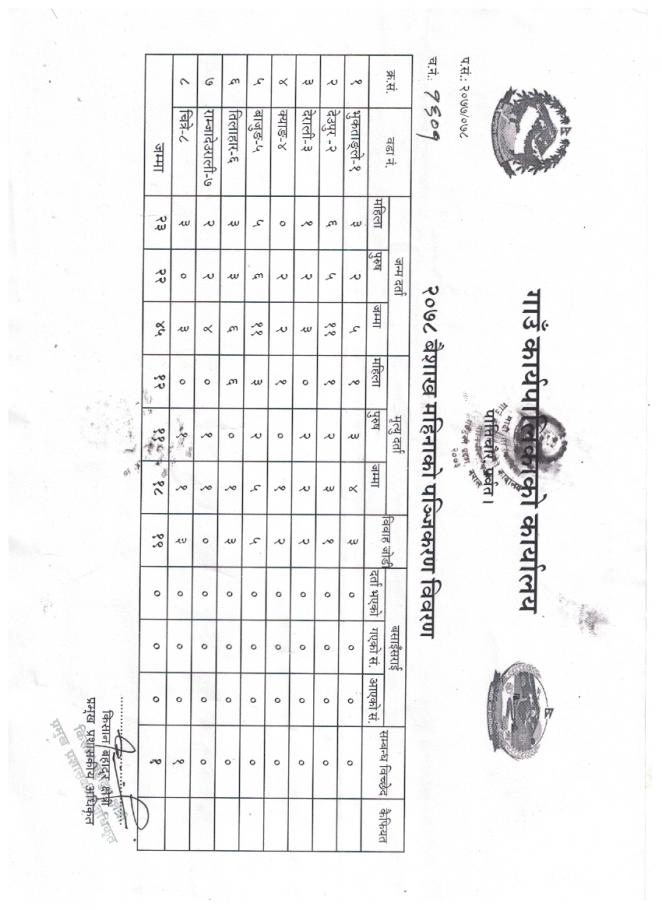 गाउँ कार्यपालिकाको कार्यालय
पर्वत ।
प.सं.: २०७७/०७८
च.नं.: १६०१
२०७८ बैशाख महिनाको पञ्जिकरण विवरण
क्र.सं. वडा नं. जन्म दर्ता मृत्यु दर्ता विवाह जोडी बसाईसराई सम्बन्ध विच्छेद कैफियत
महिला पुरुष जम्मा महिला पुरुष जम्मा दर्ता भएको गएको सं. आएको सं.
१ भुकताङ्ले-१ ३ २ ५ १ ३ ४ ३ ० ० ० ०
२ देउपुर -२ ६ ५ ११ १ २ ३ १ ० ० ० ०
३ देराली-३ १ २ ३ ० २ २ २ ० ० ० ०
४ क्याङ-४ ० २ २ १ ० १ २ ० ० ० ०
५ बाजुङ-५ ५ ६ ११ ३ २ ५ ५ ० ० ० ०
६ तिलाहार-६ ३ ३ ६ ६ ० १ ३ ० ० ० ०
७ रामजादेउराली-७ २ २ ४ ० १ १ ० ० ० ० ०
८ चित्रे-८ ३ ० ३ ० १ १ ३ ० ० ० १
जम्मा २३ २२ ४५ १२ ११ १८ १९ ० ० ० १
किसान बहादुर क्षेत्री
प्रमुख प्रशासकीय अधिकृत